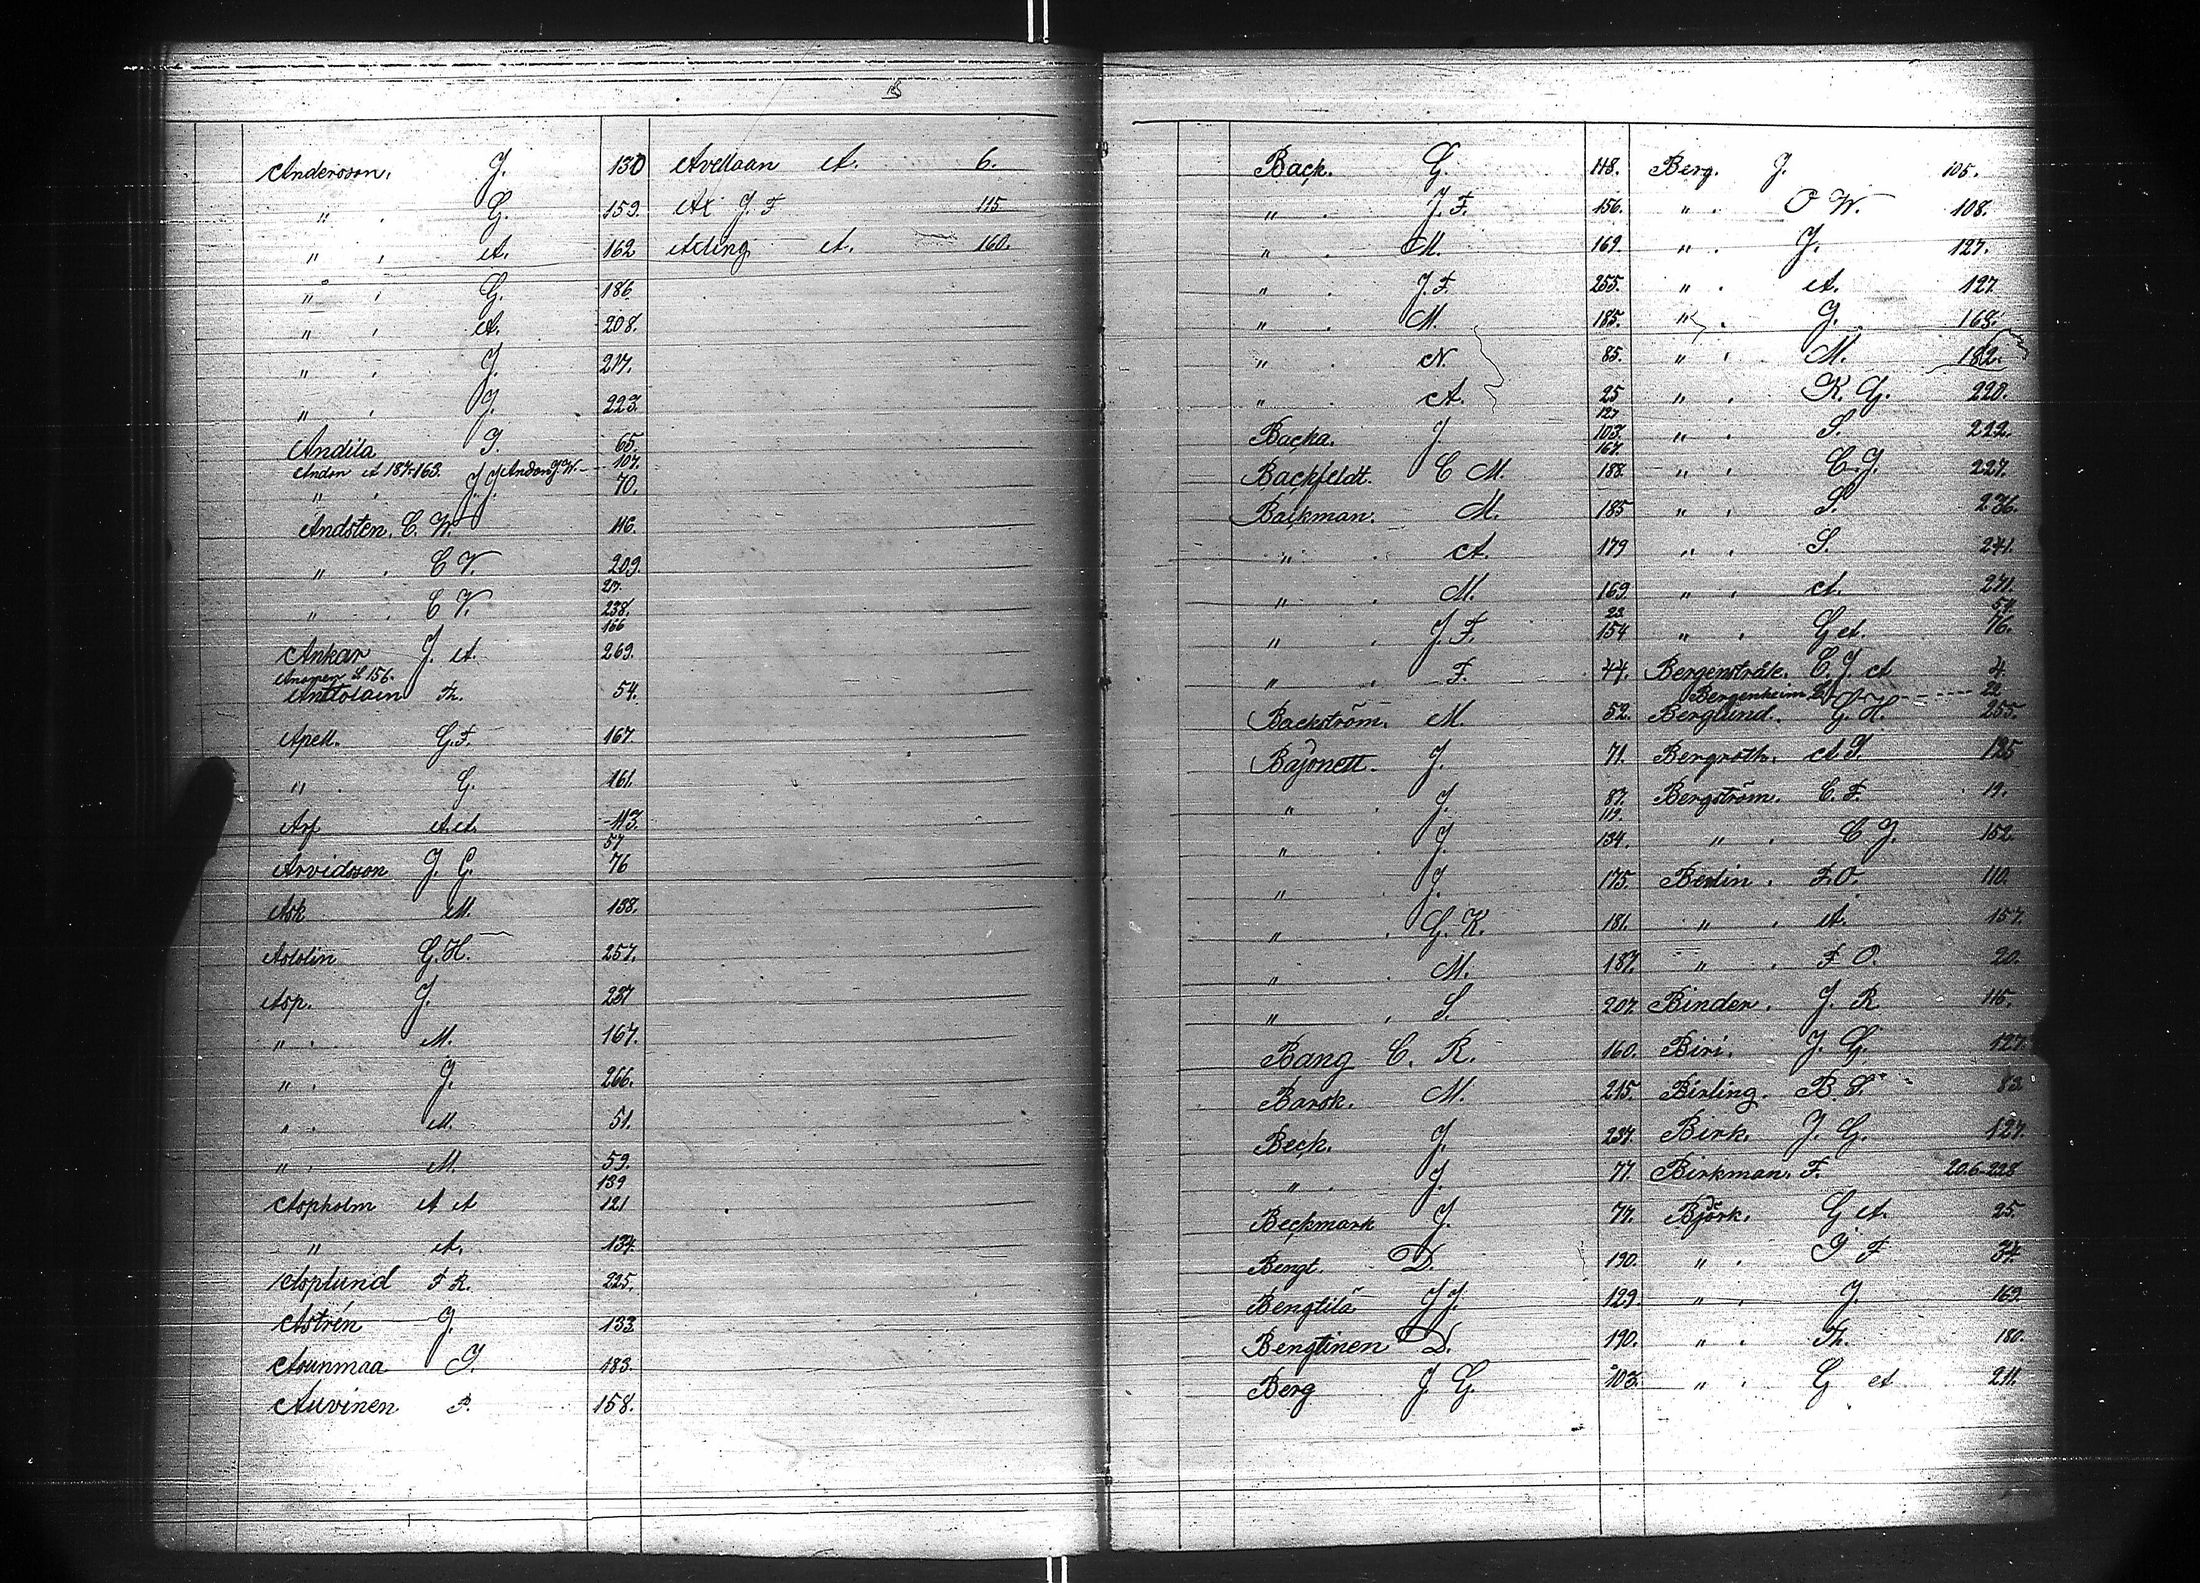 Andersson. J. 130
" . G. 159.
" . A. 162
" . G. 186
" . A. 208.
" . J. 217.
" . J. 223.
Andila J. 65.
Andon A 187.163. Andon J. W. 107.
" . J. J. 70.
Andsten. C. W. 116.
" . C V. 209.
" . C V. 238.
166
Ankar J. A. 269.
L 156.
Anttolain Th. 54.
Apell. G. F. 167.
" . G. 161.
Arf A. A. 113.
57
Arvidsson J. G. 76
Ask M. 138.
Asolin G. H. 257.
Asp. J. 237
" . M. 167.
" . J. 266.
" . M. 51.
" . M. 59.
139
Aspholm A A 121
" A. 134.
Asplund F R. 225.
Astrén J. 133
Asunmaa J. 183.
Auvinen P. 158.
Avellaan A. 6.
Ax J. F 115
Axling A. 160.
Back. G. 118.
" . J. F. 156.
" . M. 169.
" . J. F. 255.
" . M. 185.
" . N. 85.
" . A. 25
127
Backa. J 103.
167.
Backfeldt. C M. 188.
Backman. M. 185
" . A. 179
" . M. 169
23
" . J. F. 154
" . F. 44.
Backström. M. 52.
Bajonett. J. 71.
" . J. 87.
119.
" . J. 134.
" . J. 175.
" . G. K. 181.
" . M. 187.
" . S. 207.
Bang C. R. 160.
Barsk. M. 215.
Beck. J. 237.
" . J. 77.
Beckmark J. 77.
Bengt. D. 190.
Bengtilä J J. 129.
Bengtinen D. 190.
Berg J. G. 103.
Berg. J. 105.
" . O W. 108.
" . J. 127.
" . A. 127
" . J. 163.
" . M. 182.
" . K. G. 220.
" . S. 222.
" . C. J. 227.
" . S. 236.
" . S. 241.
" . A. 271.
57.
" . G A. 76.
Bergenstråle. C. J. A 4.
Bergenheim 22.
Berglund. G. H. 255.
Bergroth. A J. 125
Bergström. C. F. 19.
" . C J. 152.
Berlin. F. O. 110.
" . A. 157.
" . F O. 20.
Binder. J. R 115.
Biri. J. G. 127.
Birling. B. S. 83.
Birk. J. G. 127.
Birkman. F. 206-228
Björk. G A. 25.
" . J F 34.
" . J. 169.
" . Th. 180.
" . G A 211.